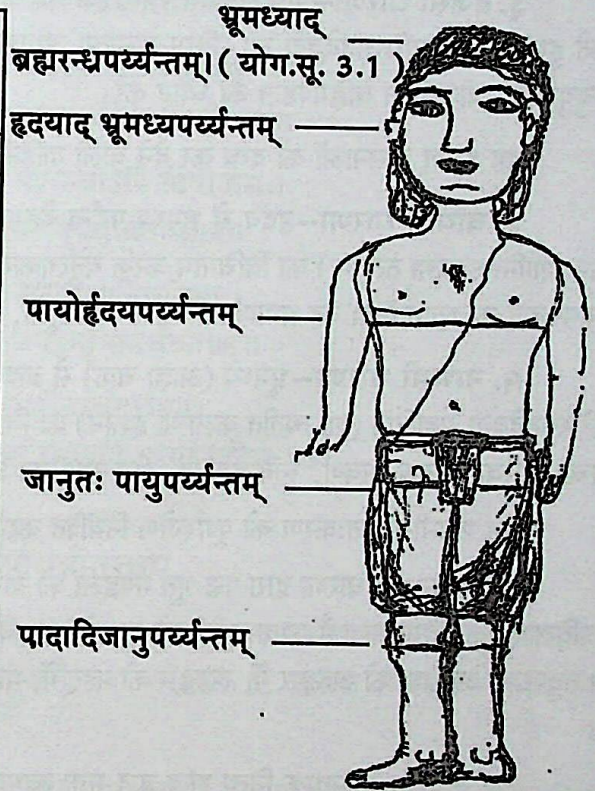 भ्रूमध्याद्
ब्रह्मरन्ध्रपर्य्यन्तम्। ( योग.सू. 3.1 )
हृदयाद् भ्रूमध्यपर्य्यन्तम्
पायोर्हृदयपर्य्यन्तम्
जानुतः पायुपर्य्यन्तम्
पादादिजानुपर्य्यन्तम्